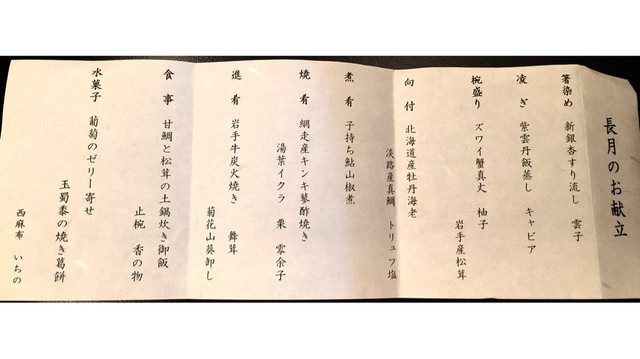 長月のお献立
箸染め 新銀杏すり流し 雲子
凌ぎ 紫雲丹飯蒸し キャビア
椀盛り ズワイ蟹真丈 柚子
岩手産松茸
向付 北海道産牡丹海老
淡路産真鯛 トリュフ塩
煮肴 子持ち鮎山椒煮
焼肴 網走産キンキ蓼酢焼き
湯葉イクラ 栗 零余子
進肴 岩手牛炭火焼き 舞茸
菊花山葵卸し
食事 甘鯛と松茸の土鍋炊き御飯
止椀 香の物
水菓子 葡萄のゼリー寄せ
玉蜀黍の焼き葛餅
西麻布 いちの